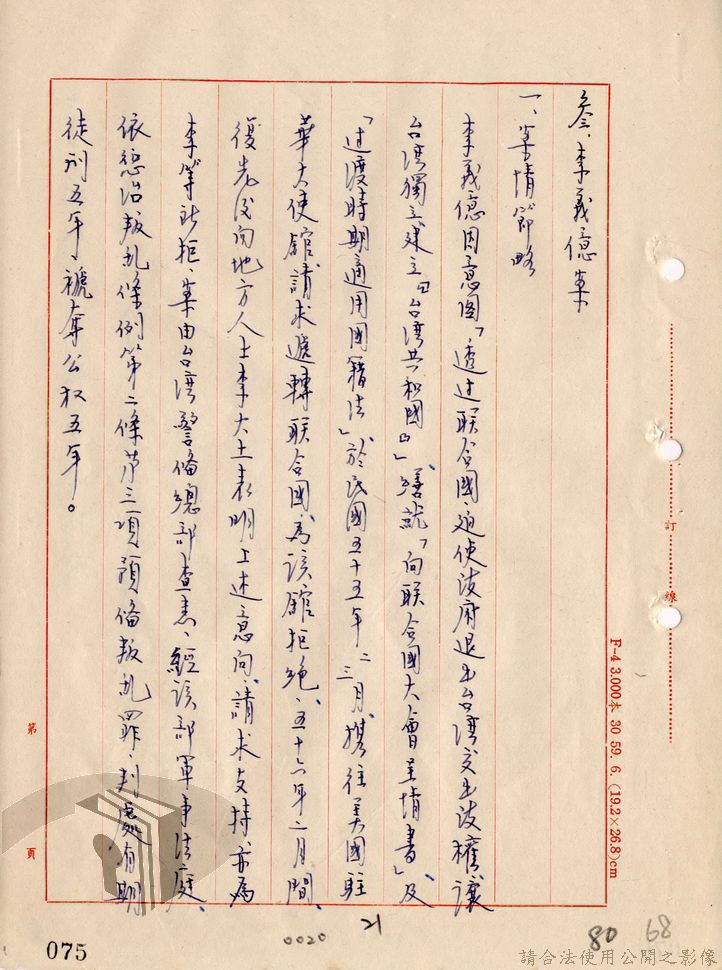 叁、李義億案
一、案情節略
李義億因意图「透过联合國，迫使政府退出台湾交出政權，讓
台湾獨立建立『台湾共和國』」，繕就「向联合國大會呈情書」及
「过渡時期適用國籍法」，於民國五十五年二三月，携往美國駐
華大使館請求遞轉联合國，為該館拒絕，五十六年二月間，
復先后向地方人士李大土表明上述意向，請求支持亦為
李等所拒，案由台湾警俻總部查悉，經該部軍事法庭，
依惩治叛乱條例第二條第三項預俻叛乱罪，判處有期
徒刑五年，褫奪公权五年。
訂
線
F-4 3.000本 30 59. 6. (19.2×26.8)cm
第
頁
075
0020
21
80
68
請合法使用公開之影像